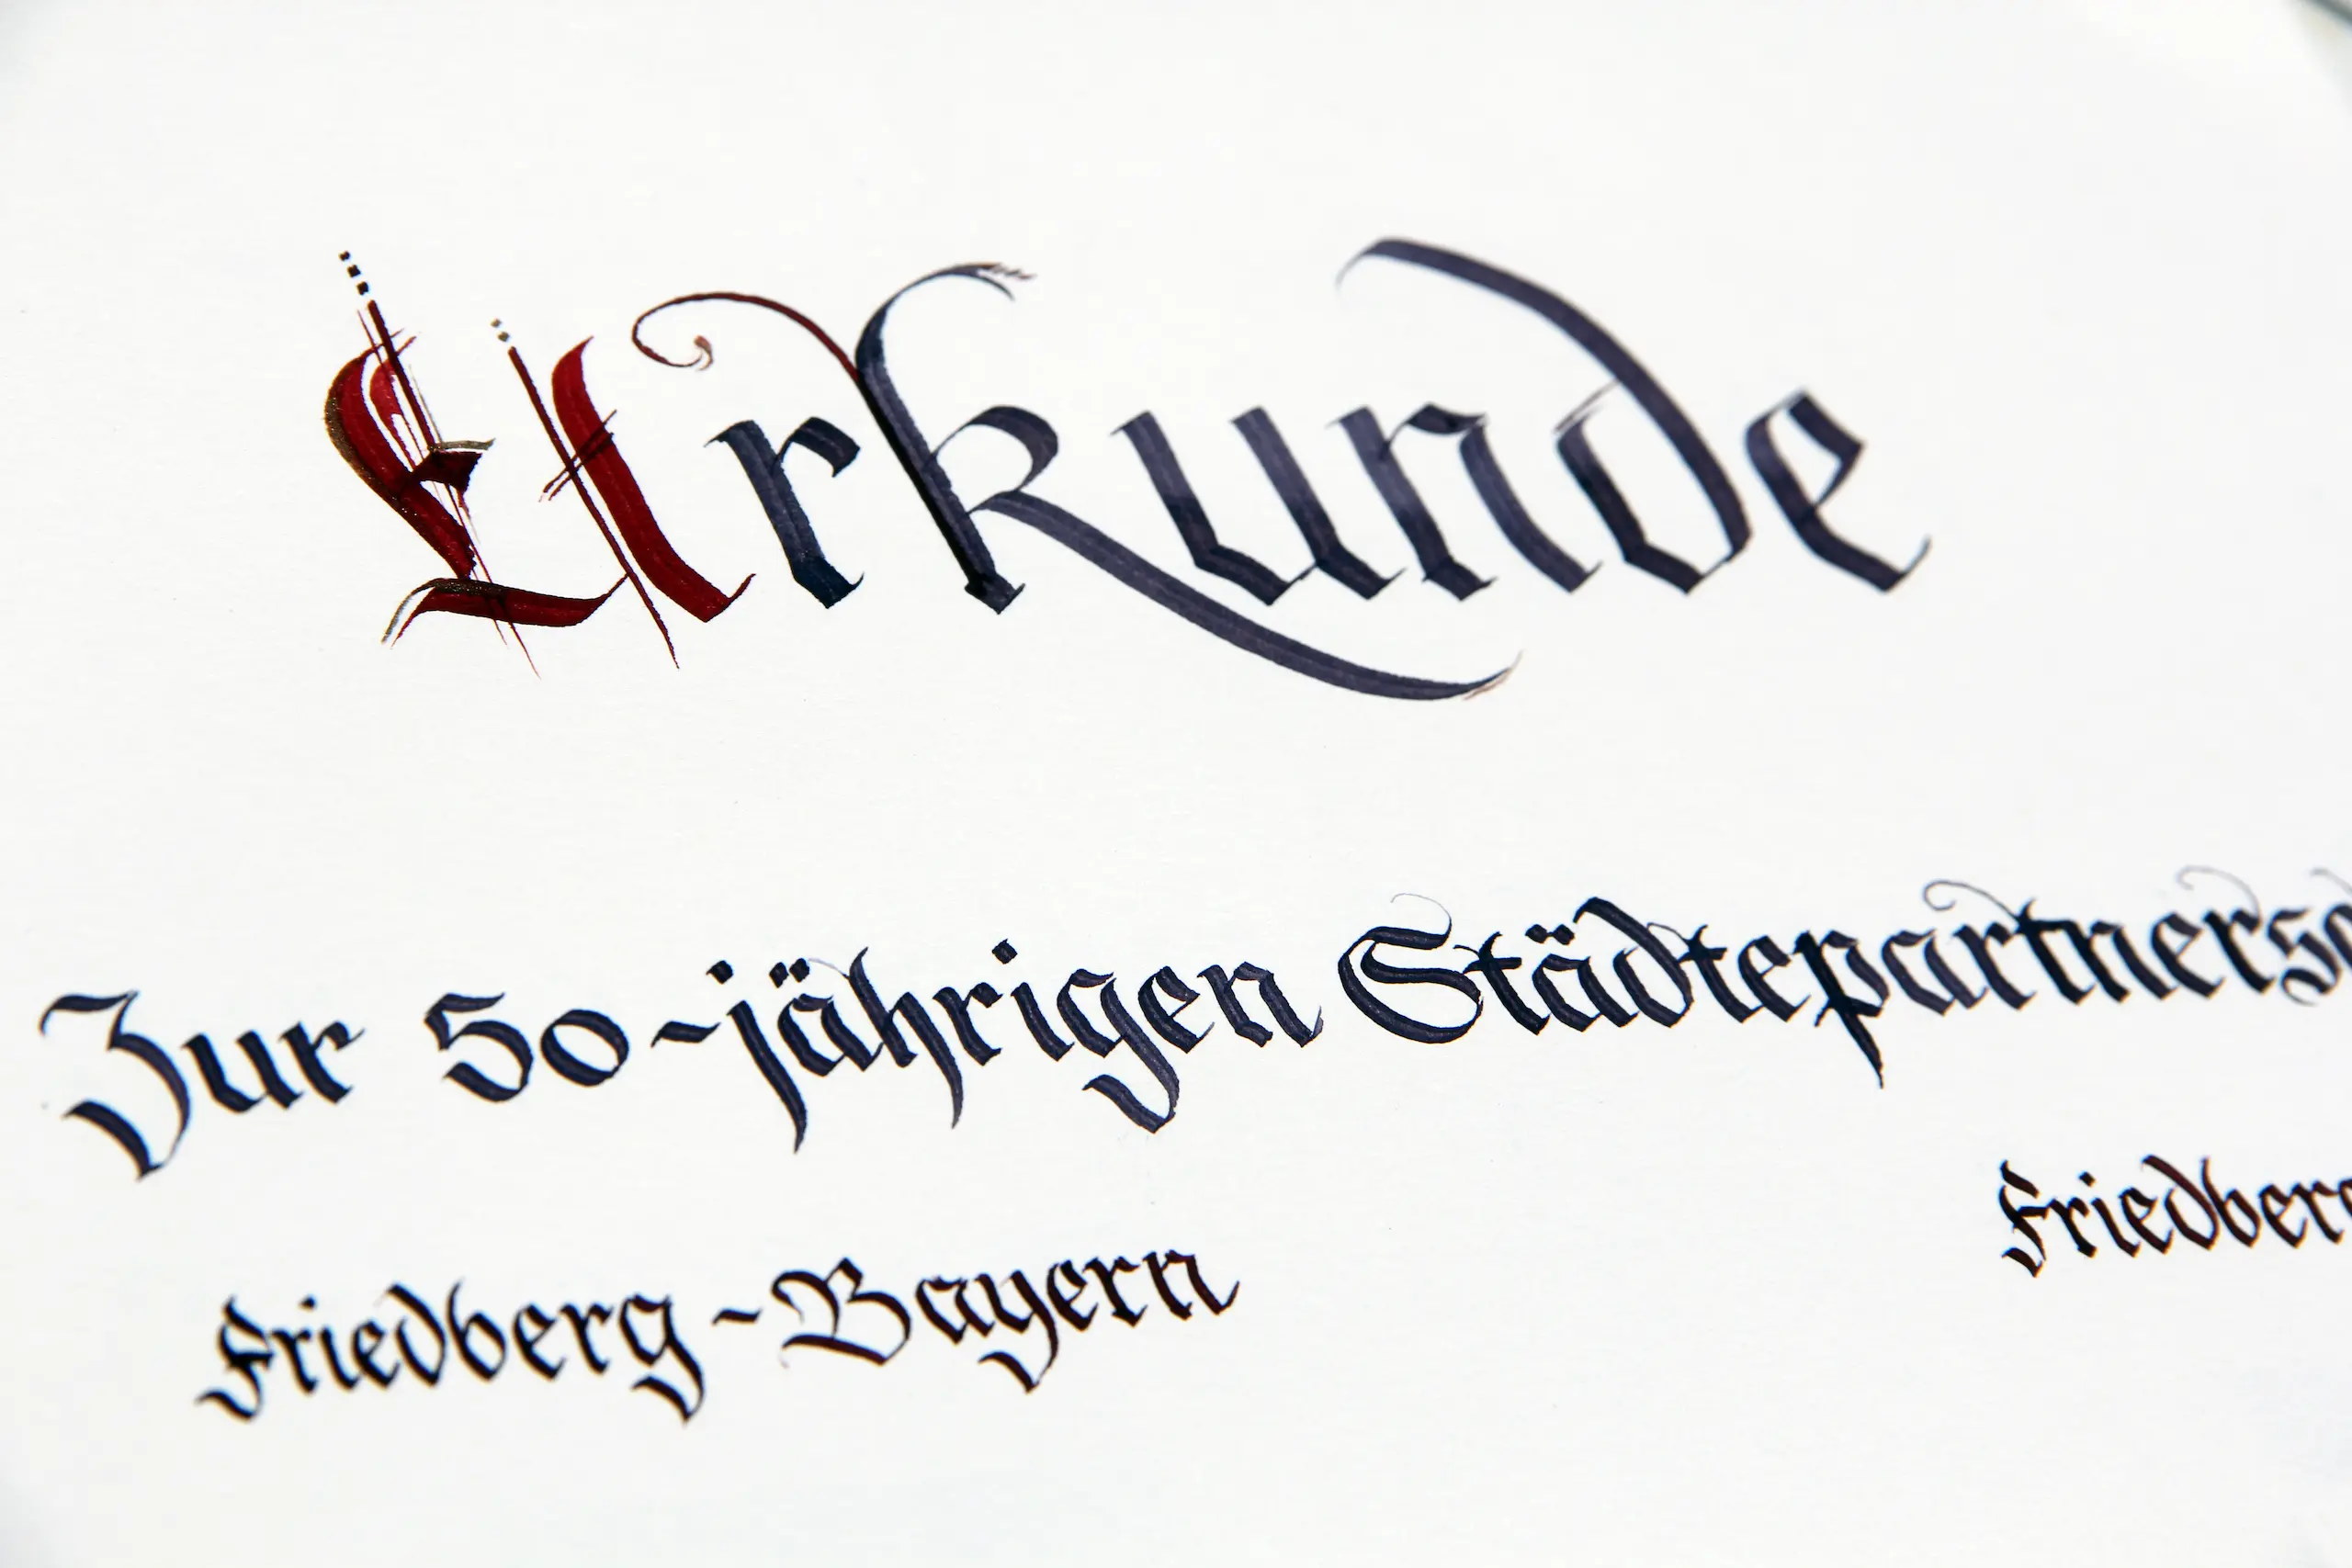 Urkunde
Zur 50-jährigen Städtepartnersc
Friedberg-Bayern Friedberg